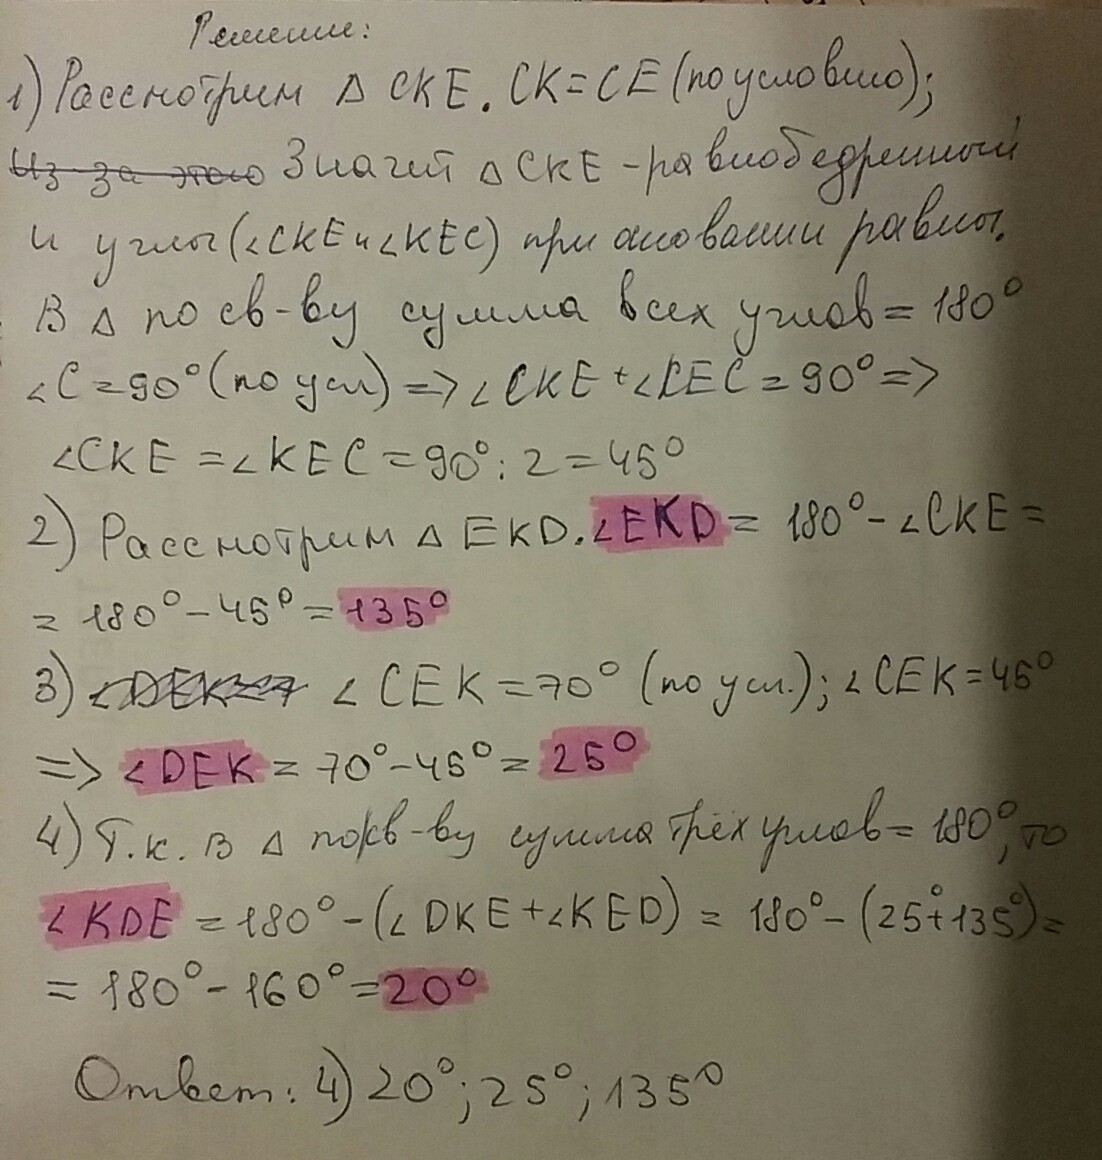 Решение:
1) Рассмотрим Δ CKE. CK=CE (по условию);
Из-за этого Значит Δ CKE - равнобедренный
и углы (∠CKE и ∠KEC) при основании равны.
В Δ по св-ву сумма всех углов = 180°
∠C = 90° (по усл) => ∠CKE + ∠KEC = 90° =>
∠CKE = ∠KEC = 90° : 2 = 45°
2) Рассмотрим Δ EKD. ∠EKD = 180° - ∠CKE =
= 180° - 45° = 135°
3) ∠DEK ∠ CEK = 70° (по усл.); ∠CEK = 45°
=> ∠DEK = 70° - 45° = 25°
4) Т.к. в Δ по св-ву сумма трёх углов = 180°, то
∠KDE = 180° - (∠DKE + ∠KED) = 180° - (25° + 135°) =
= 180° - 160° = 20°
Ответ: 4) 20°; 25°; 135°